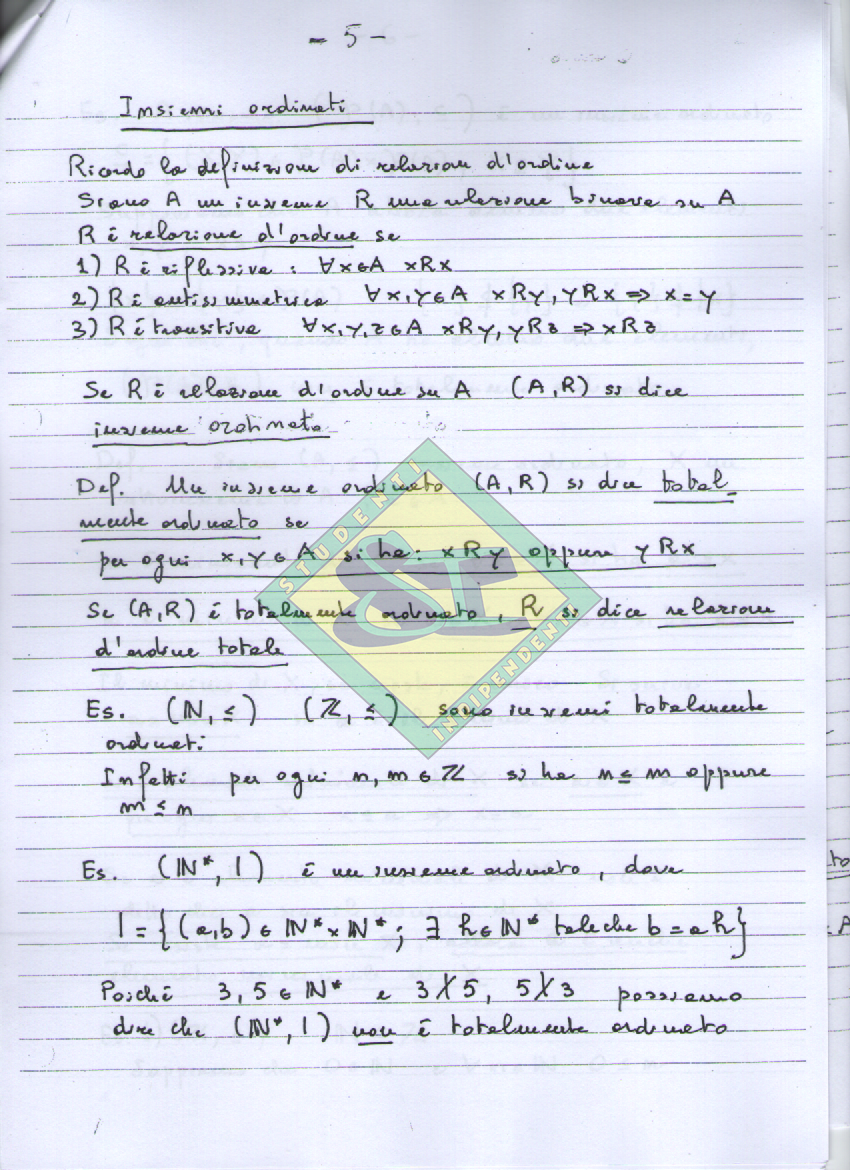 - 5 -
Insiemi ordinati
Ricordo la definizione di relazione d'ordine
Siano A un insieme R una relazione binaria su A
R è relazione d'ordine se
1) R è riflessiva : ∀x∈A xRx
2) R è antisimmetrica ∀x,y∈A xRy, yRx ⇒ x=y
3) R è transitiva ∀x,y,z∈A xRy, yRz ⇒ xRz
Se R è relazione d'ordine su A (A,R) si dice
insieme ordinato
Def. Un insieme ordinato (A,R) si dice total-
mente ordinato se
per ogni x,y∈A si ha: xRy oppure yRx
Se (A,R) è totalmente ordinato, R si dice relazione
d'ordine totale
STUDENTI
INDIPENDENTI
Es. (ℕ,≤) (ℤ,≤) sono insiemi totalmente
ordinati
Infatti per ogni n,m∈ℤ si ha n≤m oppure
m≤n
Es. (ℕ*,|) è un insieme ordinato, dove
| = {(a,b)∈ℕ*×ℕ*; ∃ h∈ℕ* tale che b=ah}
Poiché 3,5∈ℕ* e 3∤5, 5∤3 possiamo
dire che (ℕ*,|) non è totalmente ordinato